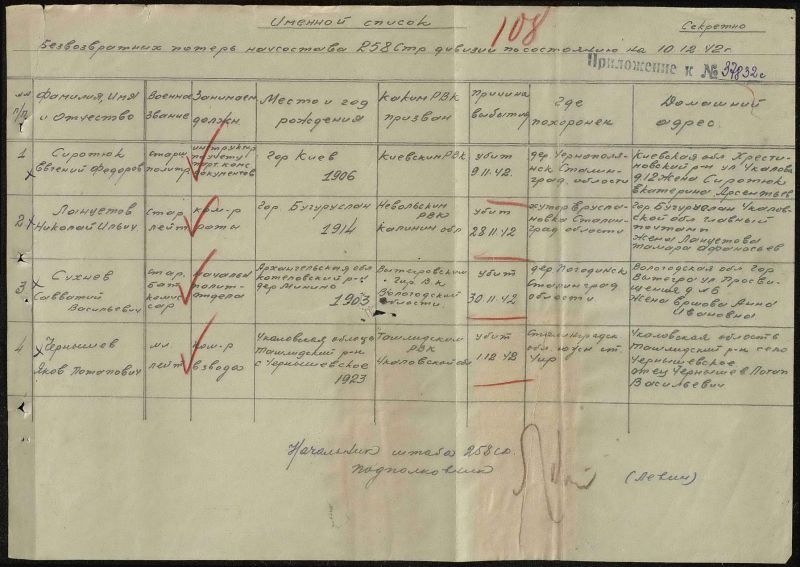 Именной список
108
Секретно
Безвозвратных потерь начсостава 258 Стр дивизии по состоянию на 10.12.42 г
Приложение к № 37832с
№№ п/п
Фамилия, имя и отчество
Военно звание
Занимаем должн
Место и год рождения
Каким РВК призван
Причина выбытия
Где похоронен
Домашний адрес.
1
Сиротюк
Евгений Федоров
старш
политр
инструктор
по учету
парт. ком.
документов
гор Киев
1906
Киевским РВК
убит
9.11.42.
дер Чернополян-
нск Сталин-
град. области
Киевская обл.
новский р-н ул Чкалова
д.12 Жена Сиротюк
Екатерина Арсентьев
2
Ланцетов
Николай Ильич
стар.
лейт
ком-р
роты
гор. Бугуруслан
1914
Невольским
РВК
Калинин обл
убит
28.11.42
хутор
новка Сталин-
град области
гор Бугуруслан Чкалов-
ской обл главный
почтамт
Жена Ланцетова
Тамара Афанасьев
3
Сухнев
Савватий
Васильевич
стар.
бат
комис
сар
начальн
полит-
отдела
Архангельская обл
р-н
дер Минино
1903
Вытегровским
гор. В к
Вологодской
области.
убит
30.11.42
дер Погодинск
Сталинград
области
Вологодской обл гор
Вытегра ул Просве-
щения д.
Жена Ершова Анна
Ивановна
4
Чернышев
Яков Потапович
мл.
лейт
ком-р
взвода
Чкаловская область
Ташлидский р-н
с Чернышевское
1923
Ташлидским
РВК
Чкаловской обл
убит
1.12.42
Сталинградск
обл. южн ст.
Чир
Чкаловская область
Ташлидский р-н село
Чернышевское
отец Чернышев Потап
Васильевич
Начальник штаба 258 сд.
подполковник
(Левин)